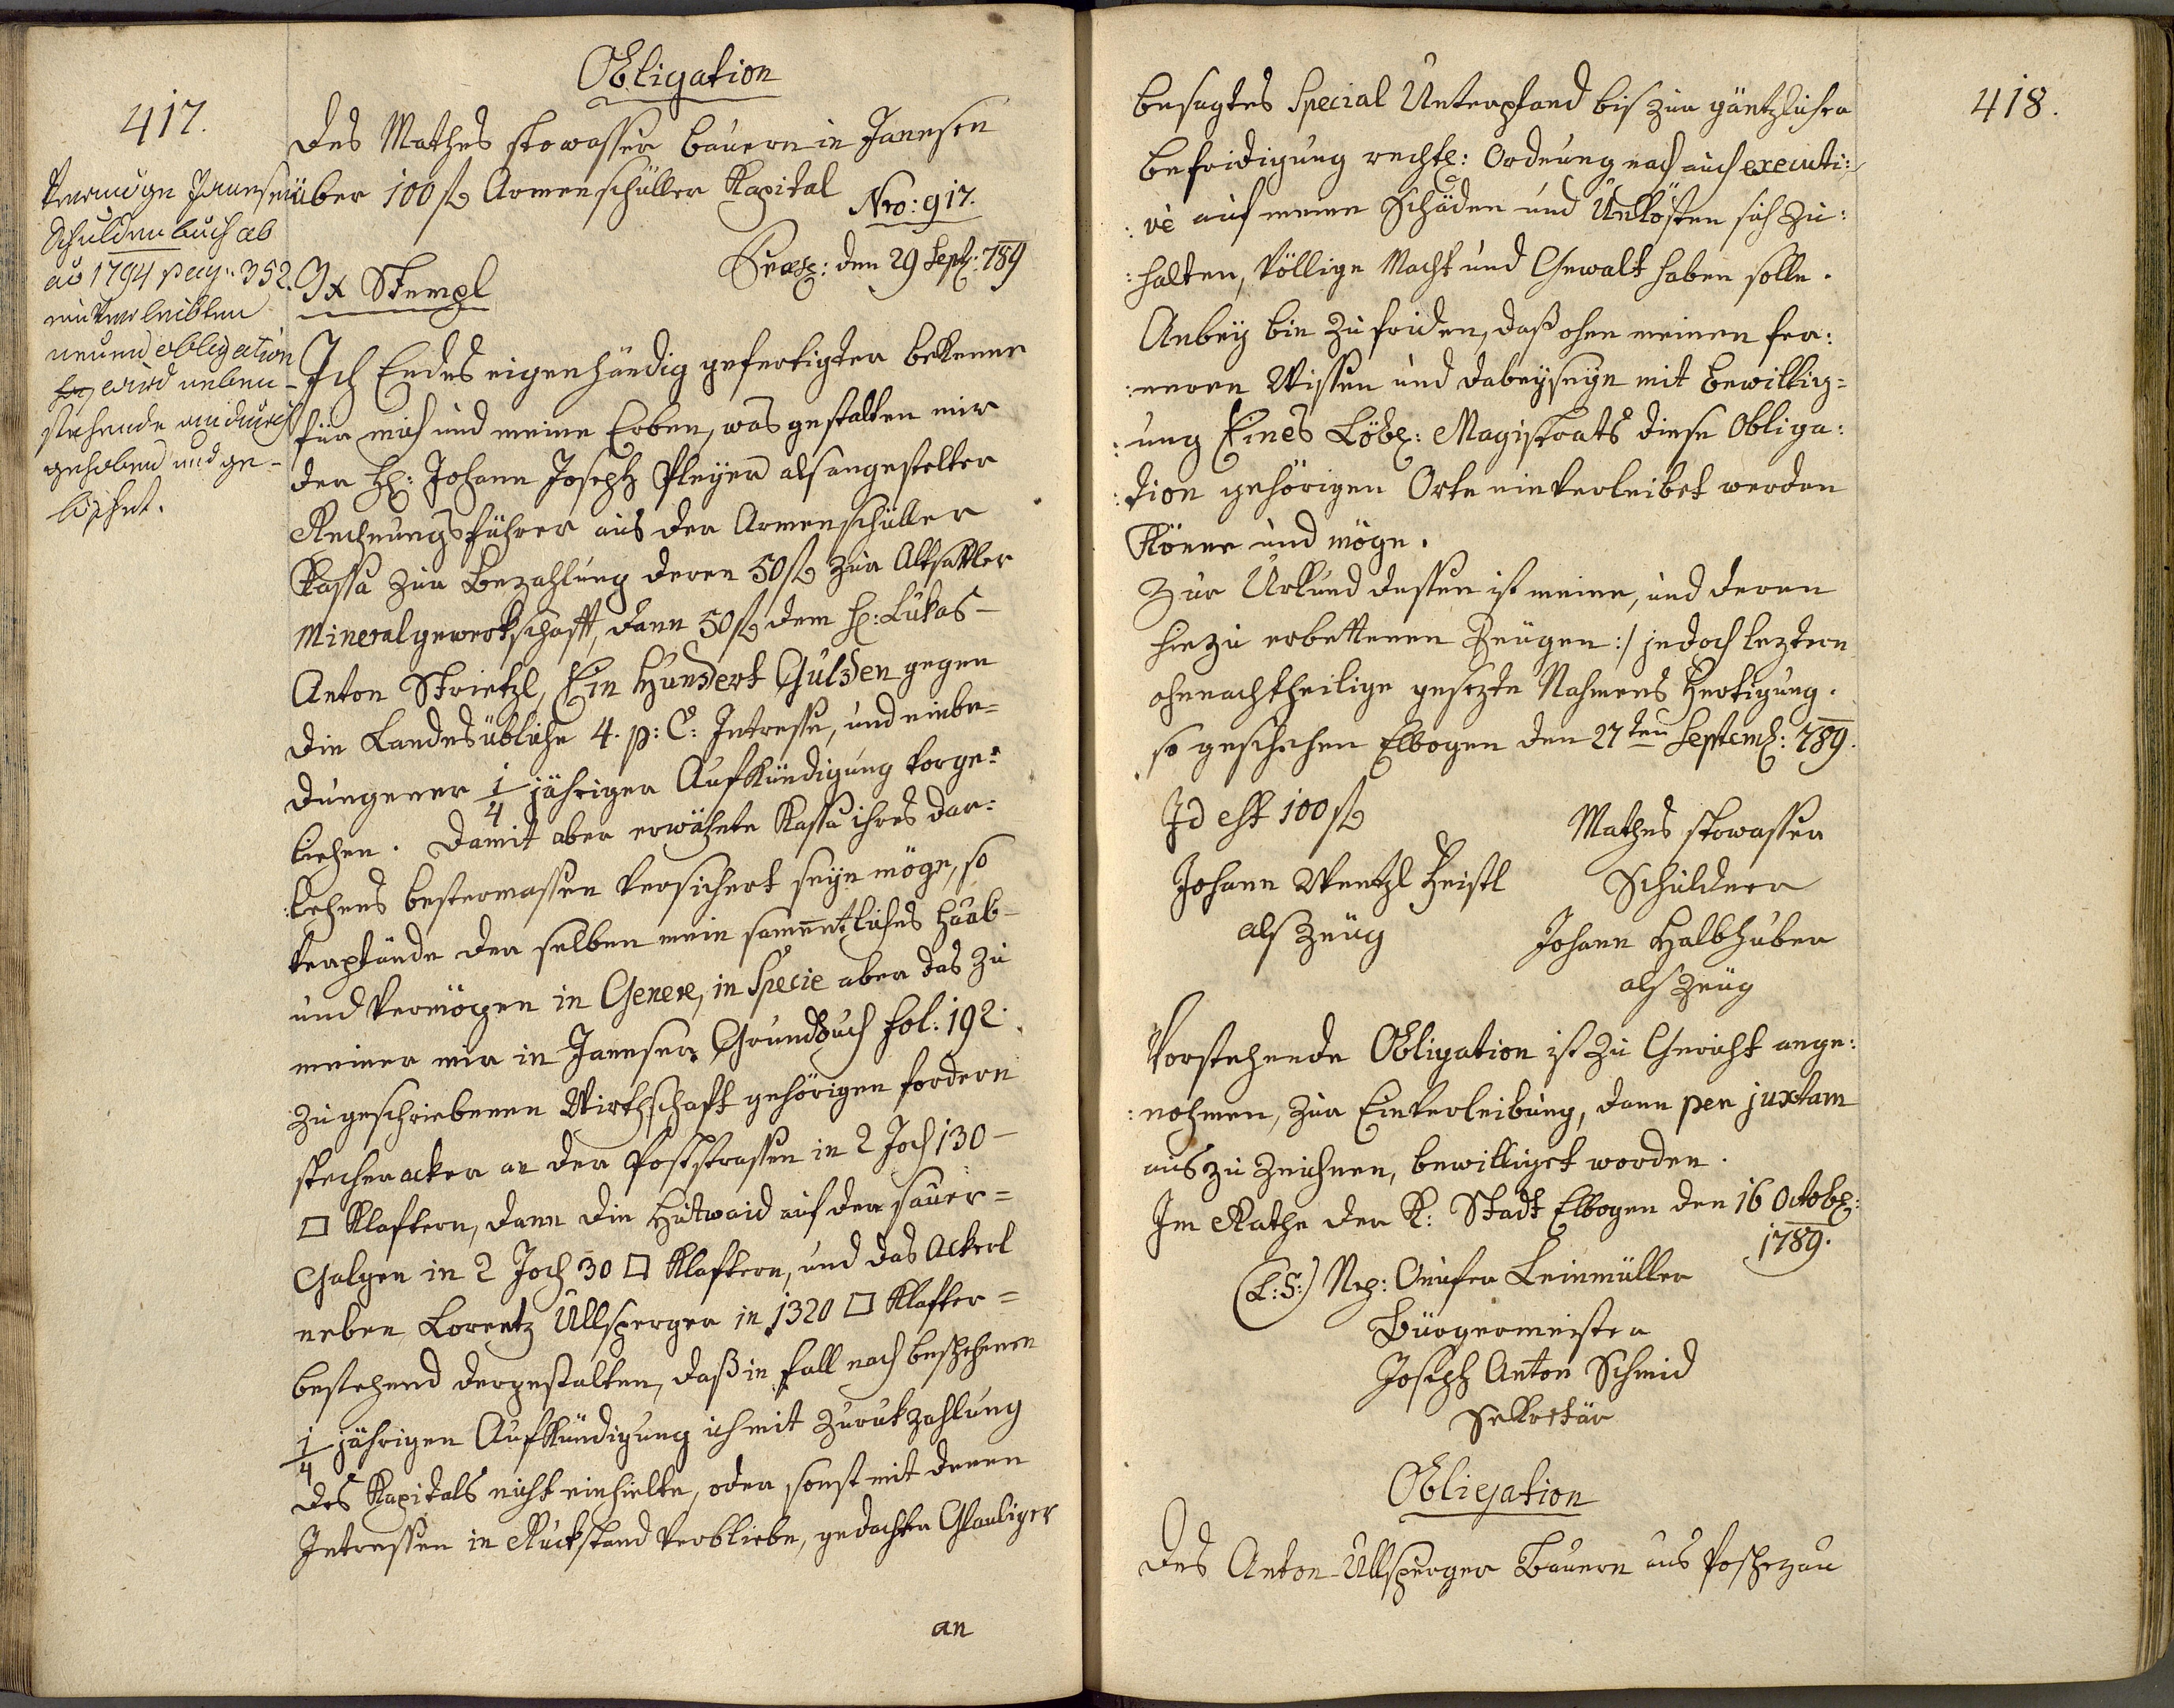 417.
Obligation
des Mathes Stowasser Bauern in Janesen
über 100 fl Armenschüller Kapital
Nro: 917.
Præs: den 29 Sept: 789
3x Stempl
Vermöge Janeser
Schuldenbuch ab
ao 1794 pag: 352.
einverleibten
neuen obligation
wird neben-
stehende andurch
gehoben und ge-
löschet.
Ich Endes eigenhändig gefertigter bekenne
für mich und meine Erben, was gestalten mir
der H: Johann Joseph Pleyer als angestelter
Rechnungsführer aus der Armenschüller
Kassa zur Bezahlung deren 50 fl zur Altsattler
Mineralgewerkschafft, dann 50 fl dem H: Lukas-
Anton Strietzl, Ein Hundert Gulden gegen
die Landesübliche 4. p: C: Intresse, und einbe=
dungener 1/4 jähriger Aufkündigung vorge=
liehen. Damit aber erwähnte Kassa ihres dar=
:lehens bestermassen versichert seyn möge, so
verpfände der selben mein sammentliches Haab-
und Vermögen in Genere, in Specie aber das zu
meiner mir in Janeser Grundbuch fol: 192.
zugeschriebenen Wirthschaft gehörigen fordern
stecheracker an der Poststrassen in 2 Joch 130-
□ Klaftern, dann die Hutwaid auf der sauer=
Galgen in 2 Joch 30 □ Klaftern, und das Ackerl
neben Lorentz Ullsperger in 1320 □ Klafter=
bestehend dergestalten, daß in fall nach beschehenen
1/4 jährigen Aufkündigung ich mit Zurukzahlung
des Kapitals nicht einhielte, oder sonst mit denen
Intressen in Ruckstand verbliebe, gedachter Glaubiger
an
418.
besagtes Special Unterpfand bis zur gäntzlichen
befridigung rechtl: Ordnung nach auch executi:
:vè auf meine Schäden und Unkösten sich zu:
:halten, völlige Macht und Gewalt haben solle.
Anbey bin zufriden, daß ohne meinen fer:
:neren Wissen und dabeyseyn mit Bewillig=
:ung Eines Löbl: Magistrats diese Obliga:
:tion gehörigen Orte einverleibet werden
Könne und möge.
Zur Urkund dessen ist meine, und deren
hiezu erbettenen Zeugen :/ jedoch leztern
ohnnachtheilige gesezte Nahmens Fertigung.
so geschehen Elbogen den 27ten Septemb: 789.
Id est 100 fl
Mathes Stowasser
Schuldner
Johann Wentzl Heistl
als Zeug
Johann Halbhuber
als Zeug
Vorstehende Obligation ist zu Gericht ange:
:nohmen, zur Einverleibung, dann per juxtam
auszuzeichnen, bewilliget worden.
Im Rathe der K: Stadt Elbogen den 16 Octob:
1789.
(L:S:) Onufer Leinmüller
Bürgermeister
Joseph Anton Schmid
Sekretär
Obligation
Des Anton Ullsperger Bauern aus Poschezau